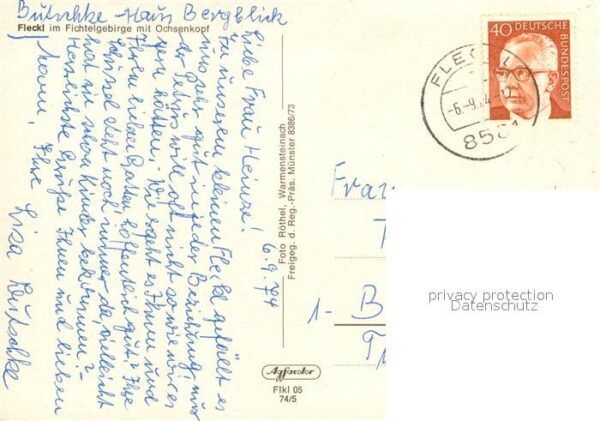 Butschke - Haus Bergblick
Fleckl im Fichtelgebirge mit Ochsenkopf
6.9.74
Liebe Frau Heinze!
In unserem kleinen Fleckl gefällt es
uns sehr gut in jeder Beziehung, nur
der Petrus will oft nicht so wie wir es
gern hätten. Wie geht es Ihnen und
Ihrem lieben Gatten hoffentlich gut? Ihr
steht noch immer da, vielleicht
hat er schon Kinder bekommen? -
Herzlichste Grüße Ihnen und lieben
Mann, Ihre Lisa Butschke
Foto Röthel, Warmensteinach
Freigeg. d. Reg.-Präs. Münster 8386/73
Agfacolor
Flkl 05
74/5
40 DEUTSCHE
BUNDESPOST
FLECKL
-6.-9.74
8581
Frau
1 - B
privacy protection
Datenschutz